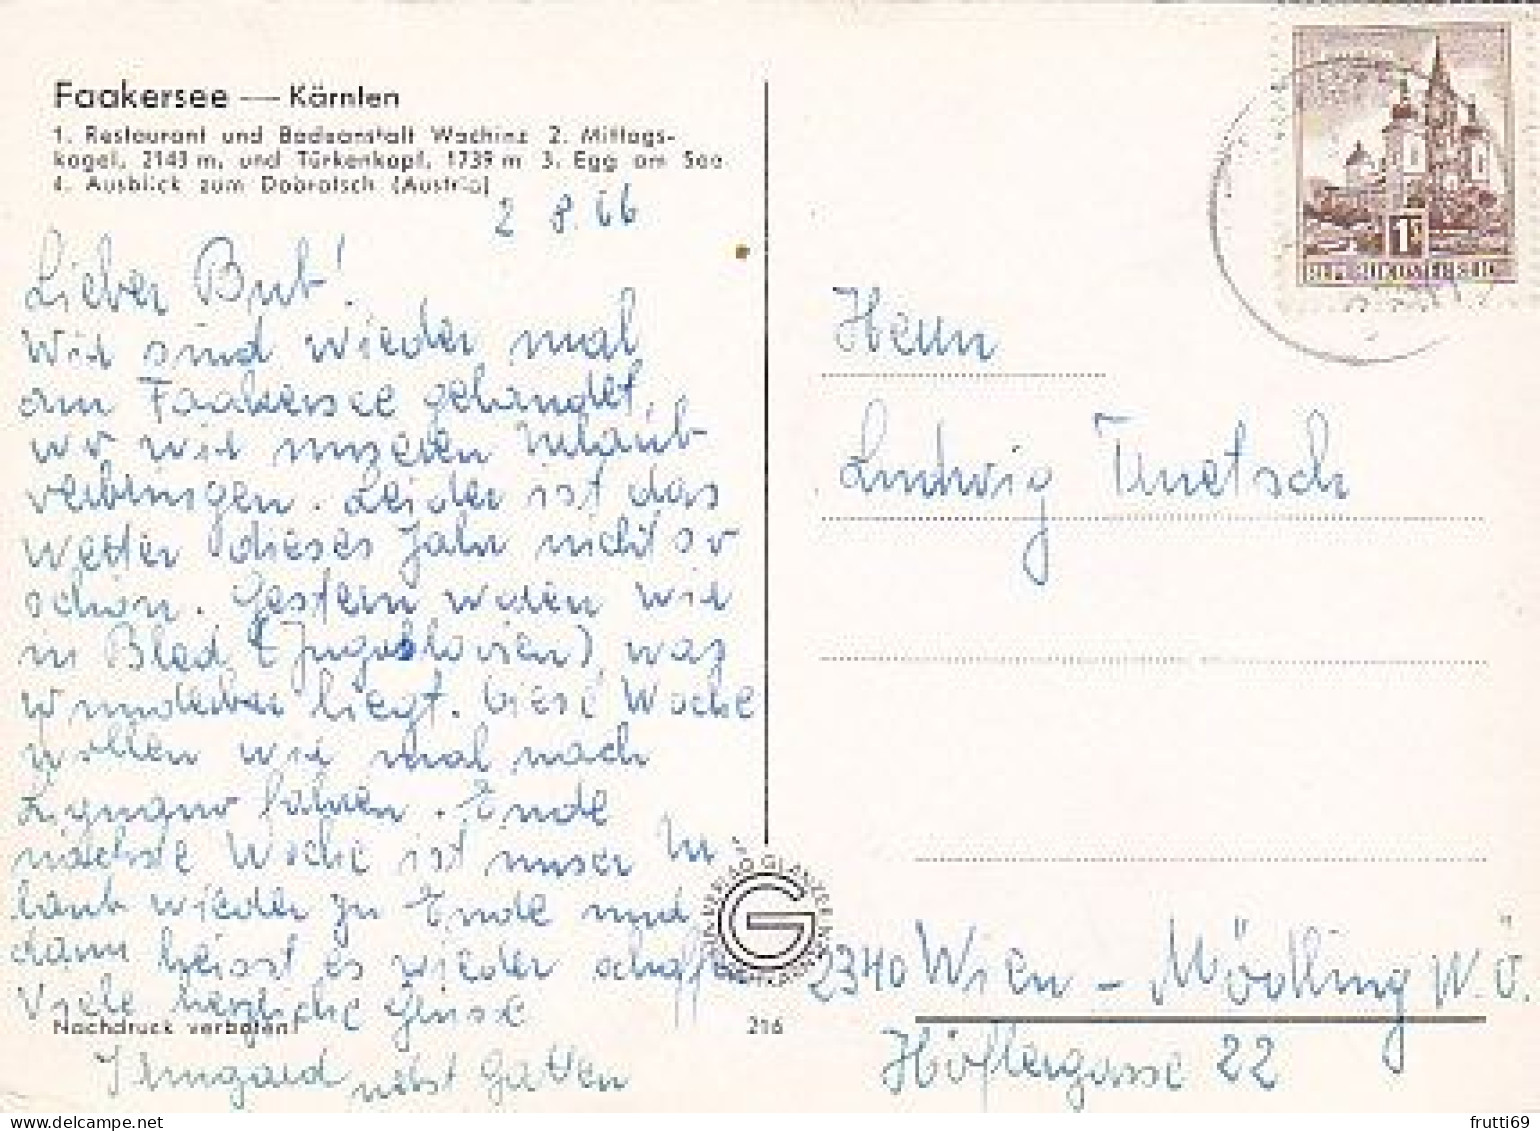 Faakersee — Kärnten
1. Restaurant und Badeanstalt Wachinz 2. Mittags-
kogel, 2143 m, und Türkenkopf, 1739 m 3. Egg am See
4. Ausblick zum Dobratsch (Austria)
2 8. 66
Lieber Bub!
Wir sind wieder mal
am Faakersee gelandet,
wo wir unseren Urlaub
verbringen. Leider ist das
Wetter dieses Jahr nicht so
schön. Gestern waren wir
in Bled (Jugoslavien), was
wunderbar liegt. Diese Woche
wollen wir mal nach
Lignano fahren. Ende
nächste Woche ist unser Ur-
laub wieder zu Ende und
dann heisst es wieder schaffen
Viele herzliche Grüsse
Irmgard nebst Gatten
Nachdruck verboten!
216
G
1S
Herrn
Ludwig Truetsch
2340 Wien - Mödling N.Ö.
Höflergasse 22
frutti69